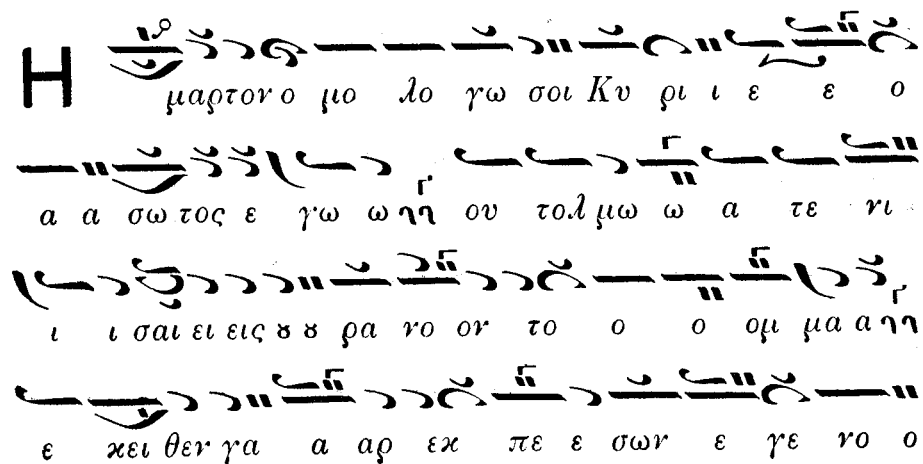 Η μαρτον ο μο λο γω σοι Κυ ρι ι ε ε ο
α α σω τος ε γω ω ου τολ μω ω α τε νι
ι ι σαι ει εις ȣ ȣ ρα νο ον το ο ο ομ μα α
ε κει θεν γα α αρ εκ πε ε σων ε γε νο ο